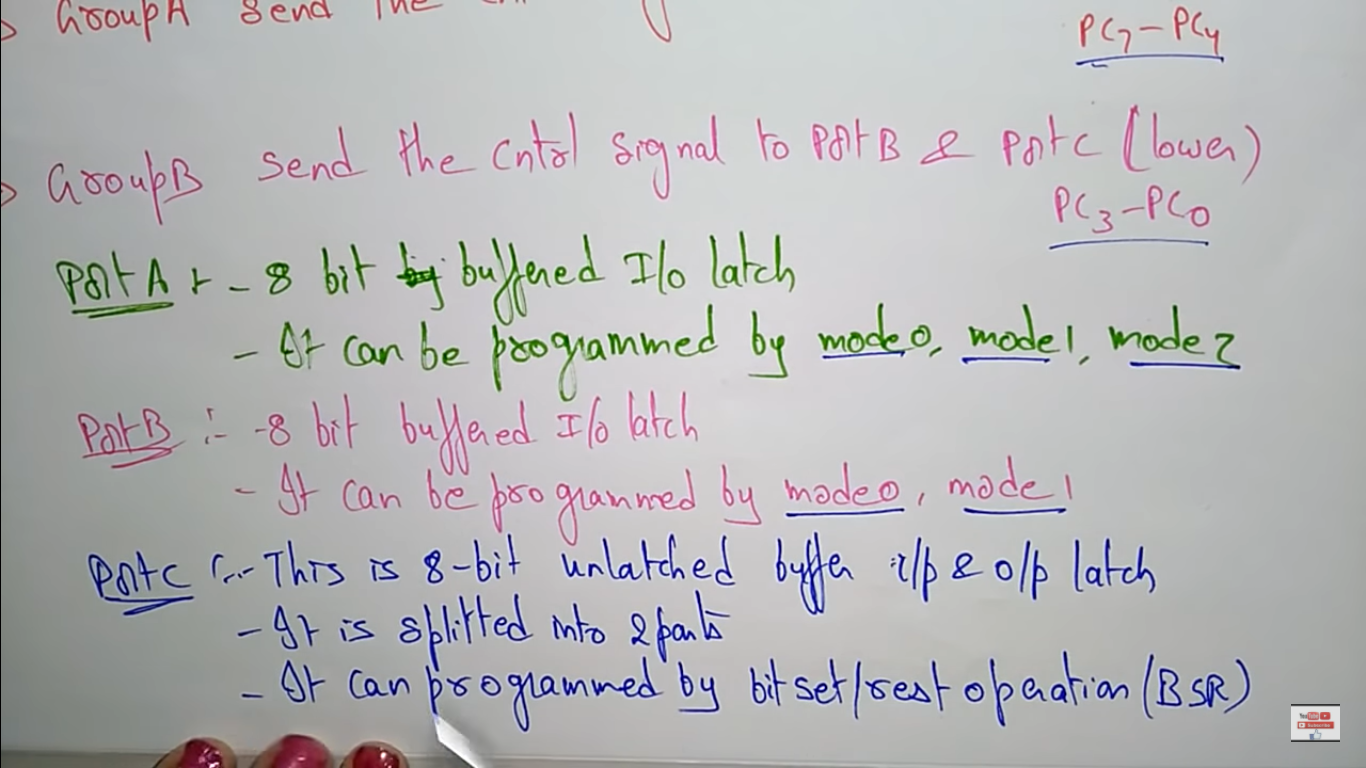 GroupA send the
PC7-PC4
GroupB send the Cntrl signal to Port B & Port C (lower)
PC3-PC0
Port A :- - 8 bit buffered I/o latch
- It can be programmed by mode0, mode1, mode2
Port B :- - 8 bit buffered I/o latch
- It can be programmed by mode0, mode1
Port C :- - This is 8-bit unlatched buffer i/p & o/p latch
- It is splitted into 2 parts
- It can programmed by bit set/rest operation (BSR)
YouTube
Subscribe